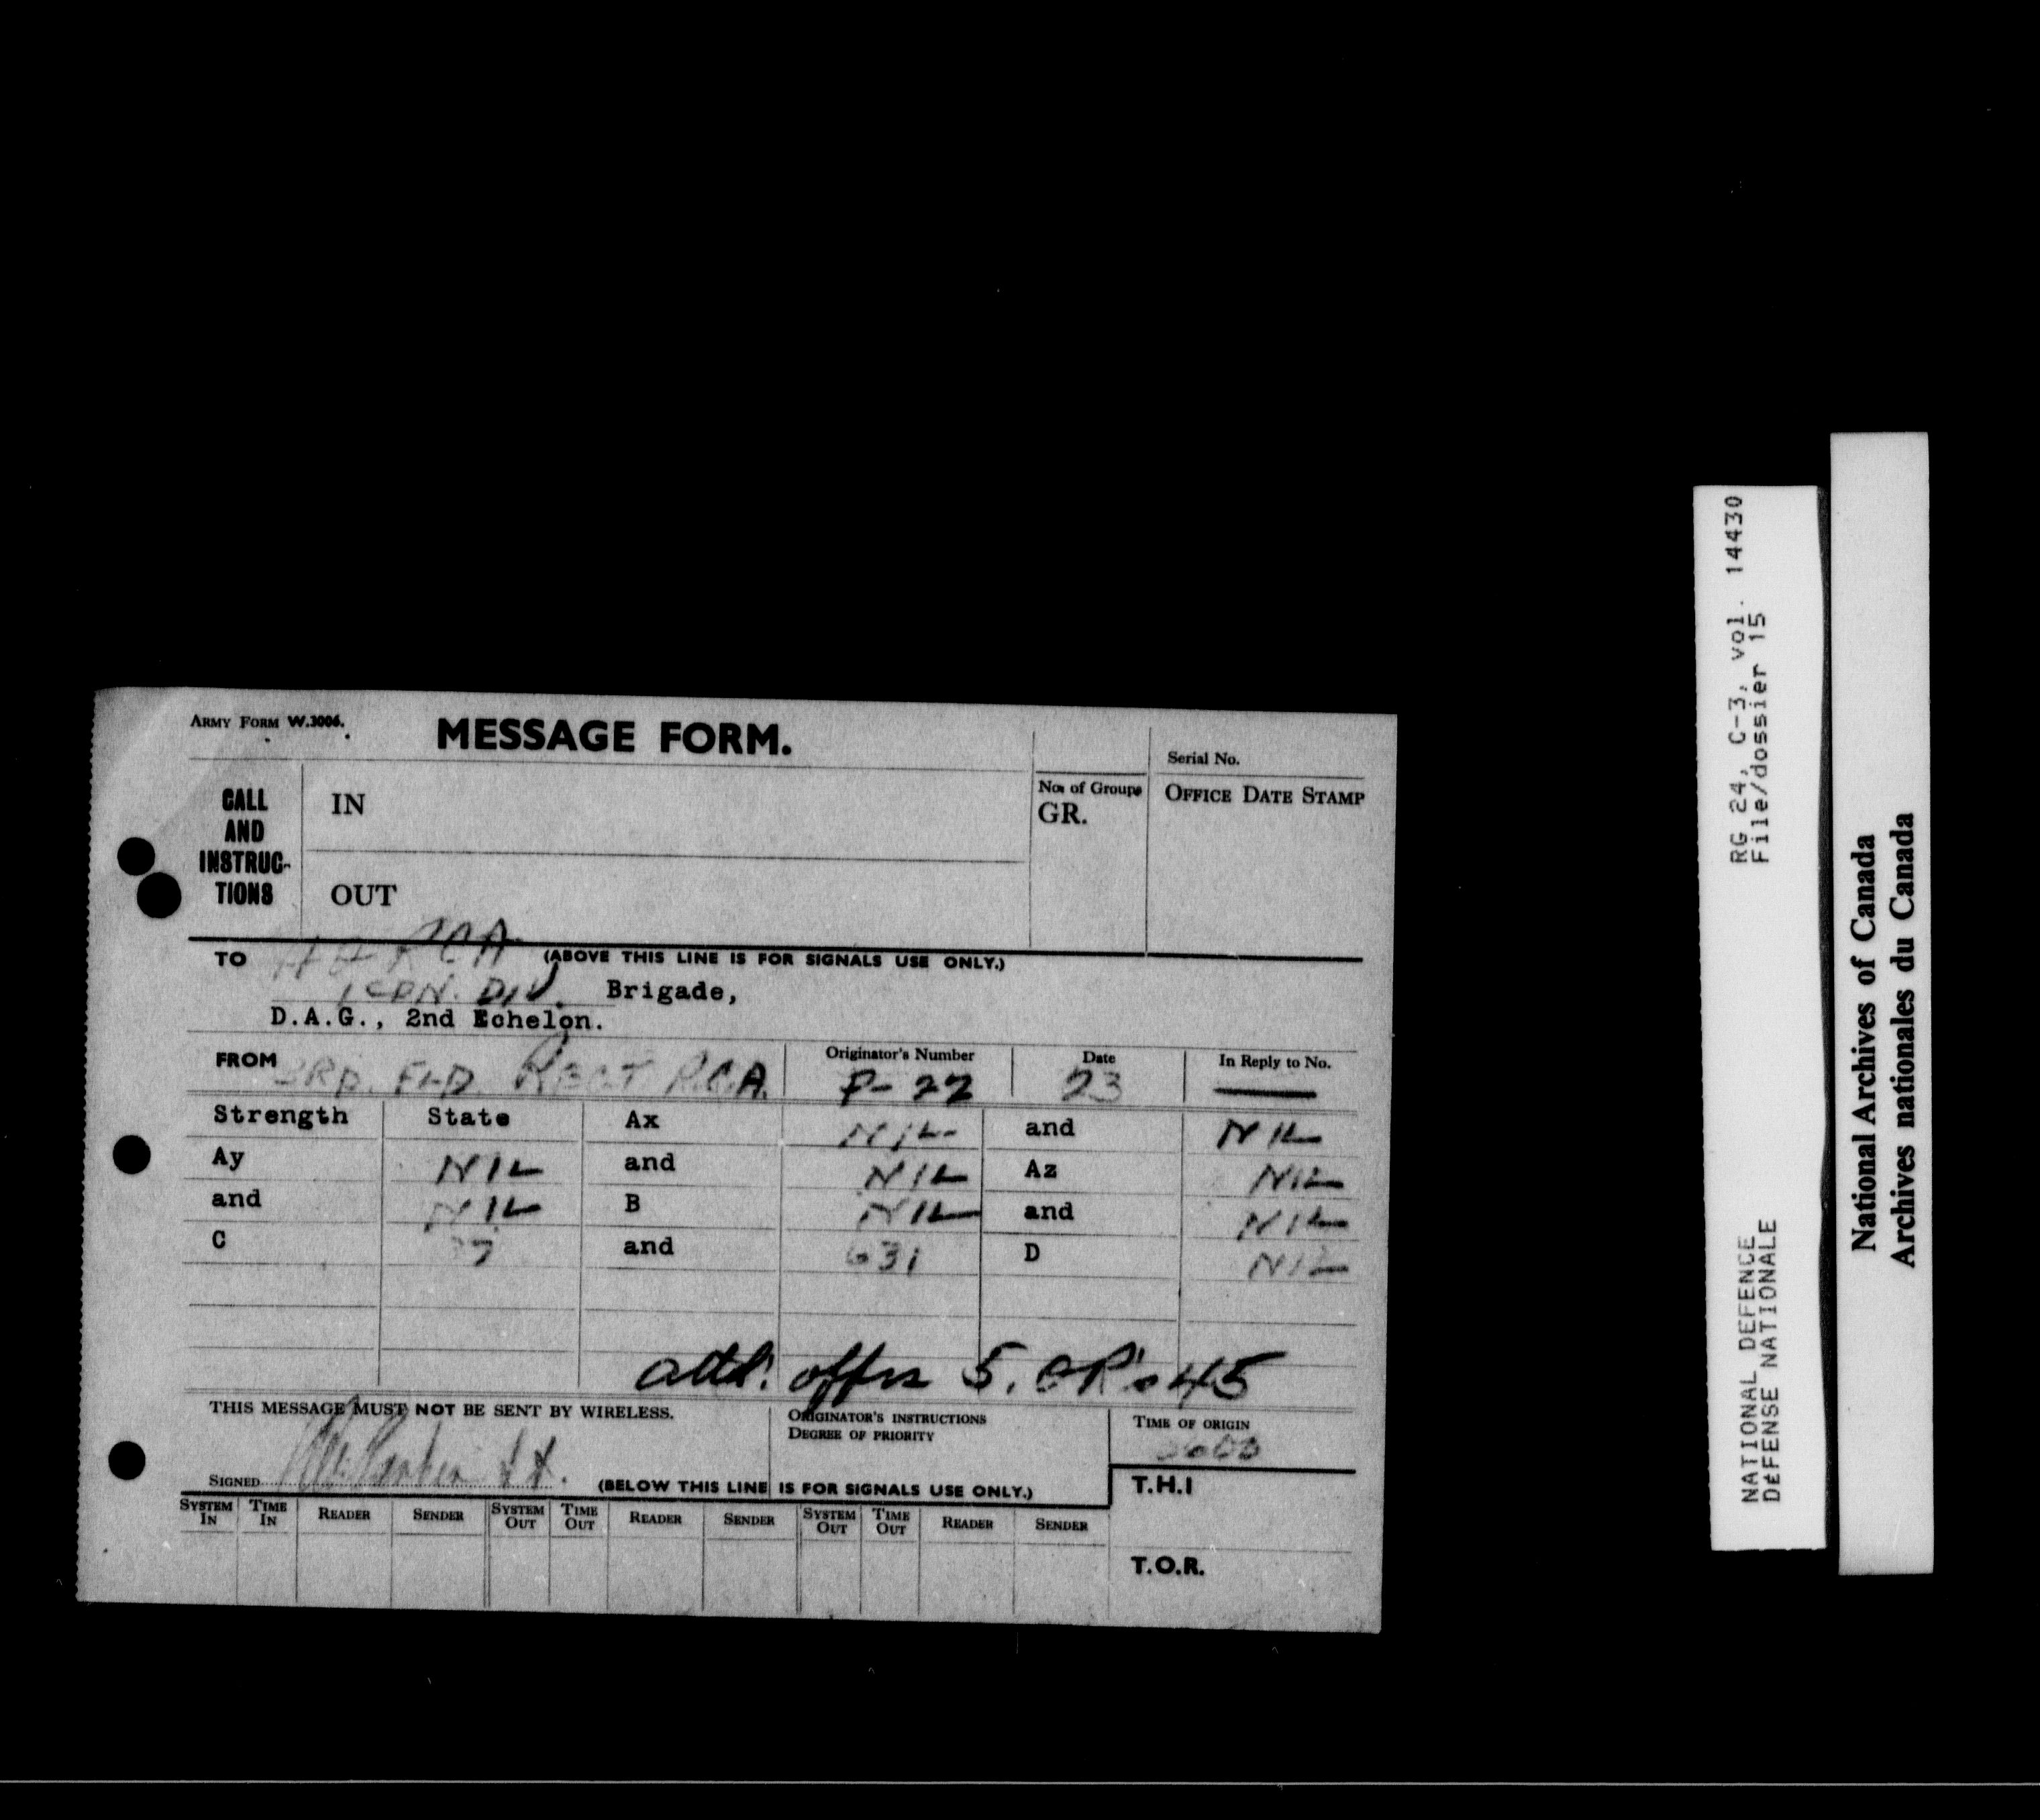 ARMY FORM W.3006.
MESSAGE FORM.
Serial No.
CALL AND INSTRUC-TIONS
IN
No. of Groups
GR.
OFFICE DATE STAMP
OUT
TO HQ RCA (ABOVE THIS LINE IS FOR SIGNALS USE ONLY.)
1 CDN. DIV. Brigade,
D.A.G., 2nd Echelon.
FROM 3RD. FLD. REGT R.C.A. Originator's Number P-22 Date 23 In Reply to No. —
Strength State Ax NIL and NIL
Ay NIL and NIL Az NIL
and NIL B NIL and NIL
C 37 and 631 D NIL
attd. offrs 5. OR's 45
THIS MESSAGE MUST NOT BE SENT BY WIRELESS.
ORIGINATOR'S INSTRUCTIONS
DEGREE OF PRIORITY
TIME OF ORIGIN
SIGNED Lt. (BELOW THIS LINE IS FOR SIGNALS USE ONLY.)
T.H.I
SYSTEM IN TIME IN READER SENDER SYSTEM OUT TIME OUT READER SENDER SYSTEM OUT TIME OUT READER SENDER
T.O.R.
RG 24, C-3, vol. 14430
File/dossier 15
NATIONAL DEFENCE
DÉFENSE NATIONALE
National Archives of Canada
Archives nationales du Canada